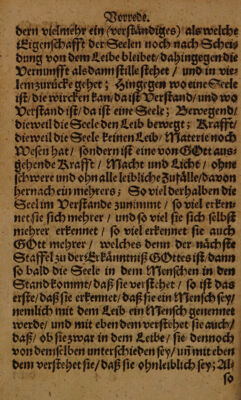 Vorrede.
dern vielmehr ein (verständiges) als welche
Eigenschafft der Seelen noch nach Schei-
dung von dem Leibe bleibet / dahingegen die
Vernunfft als dann stille stehet / und in vie-
len zurücke gehet; Hingegen wo eine Seele
ist / die wircken kan / da ist Verstand / und wo
Verstand ist / da ist eine Seele; Bewegend /
die weil die Seele den Leib bewegt; Krafft /
die weil die Seele keinen Leib / Materie noch
Wesen hat / sondern ist eine von GOtt aus-
gehende Krafft / Macht und Licht / ohne
schwere und ohn alle leibliche Zufälle / davon
hernach ein mehrers; So viel der halben die
Seel im Verstande zunimmt / so viel erken-
net sie sich mehrer / und so viel sie sich selbst
mehrer erkennet / so viel erkennet sie auch
GOtt mehrer / welches denn der nächste
Staffel zu der Erkänntniß GOttes ist / dann
so bald die Seele in dem Menschen in den
Stand kommt / daß sie verstehet / so ist das
erste / daß sie erkennet / daß sie ein Mensch sey /
nemlich mit dem Leib ein Mensch genennet
werde / und mit eben dem verstehet sie auch /
daß / ob sie zwar in dem Leibe / sie dennoch
von demselben unterschieden sey / uñ mit eben
dem verstehet sie / daß sie ohnleiblich sey; Al-
so